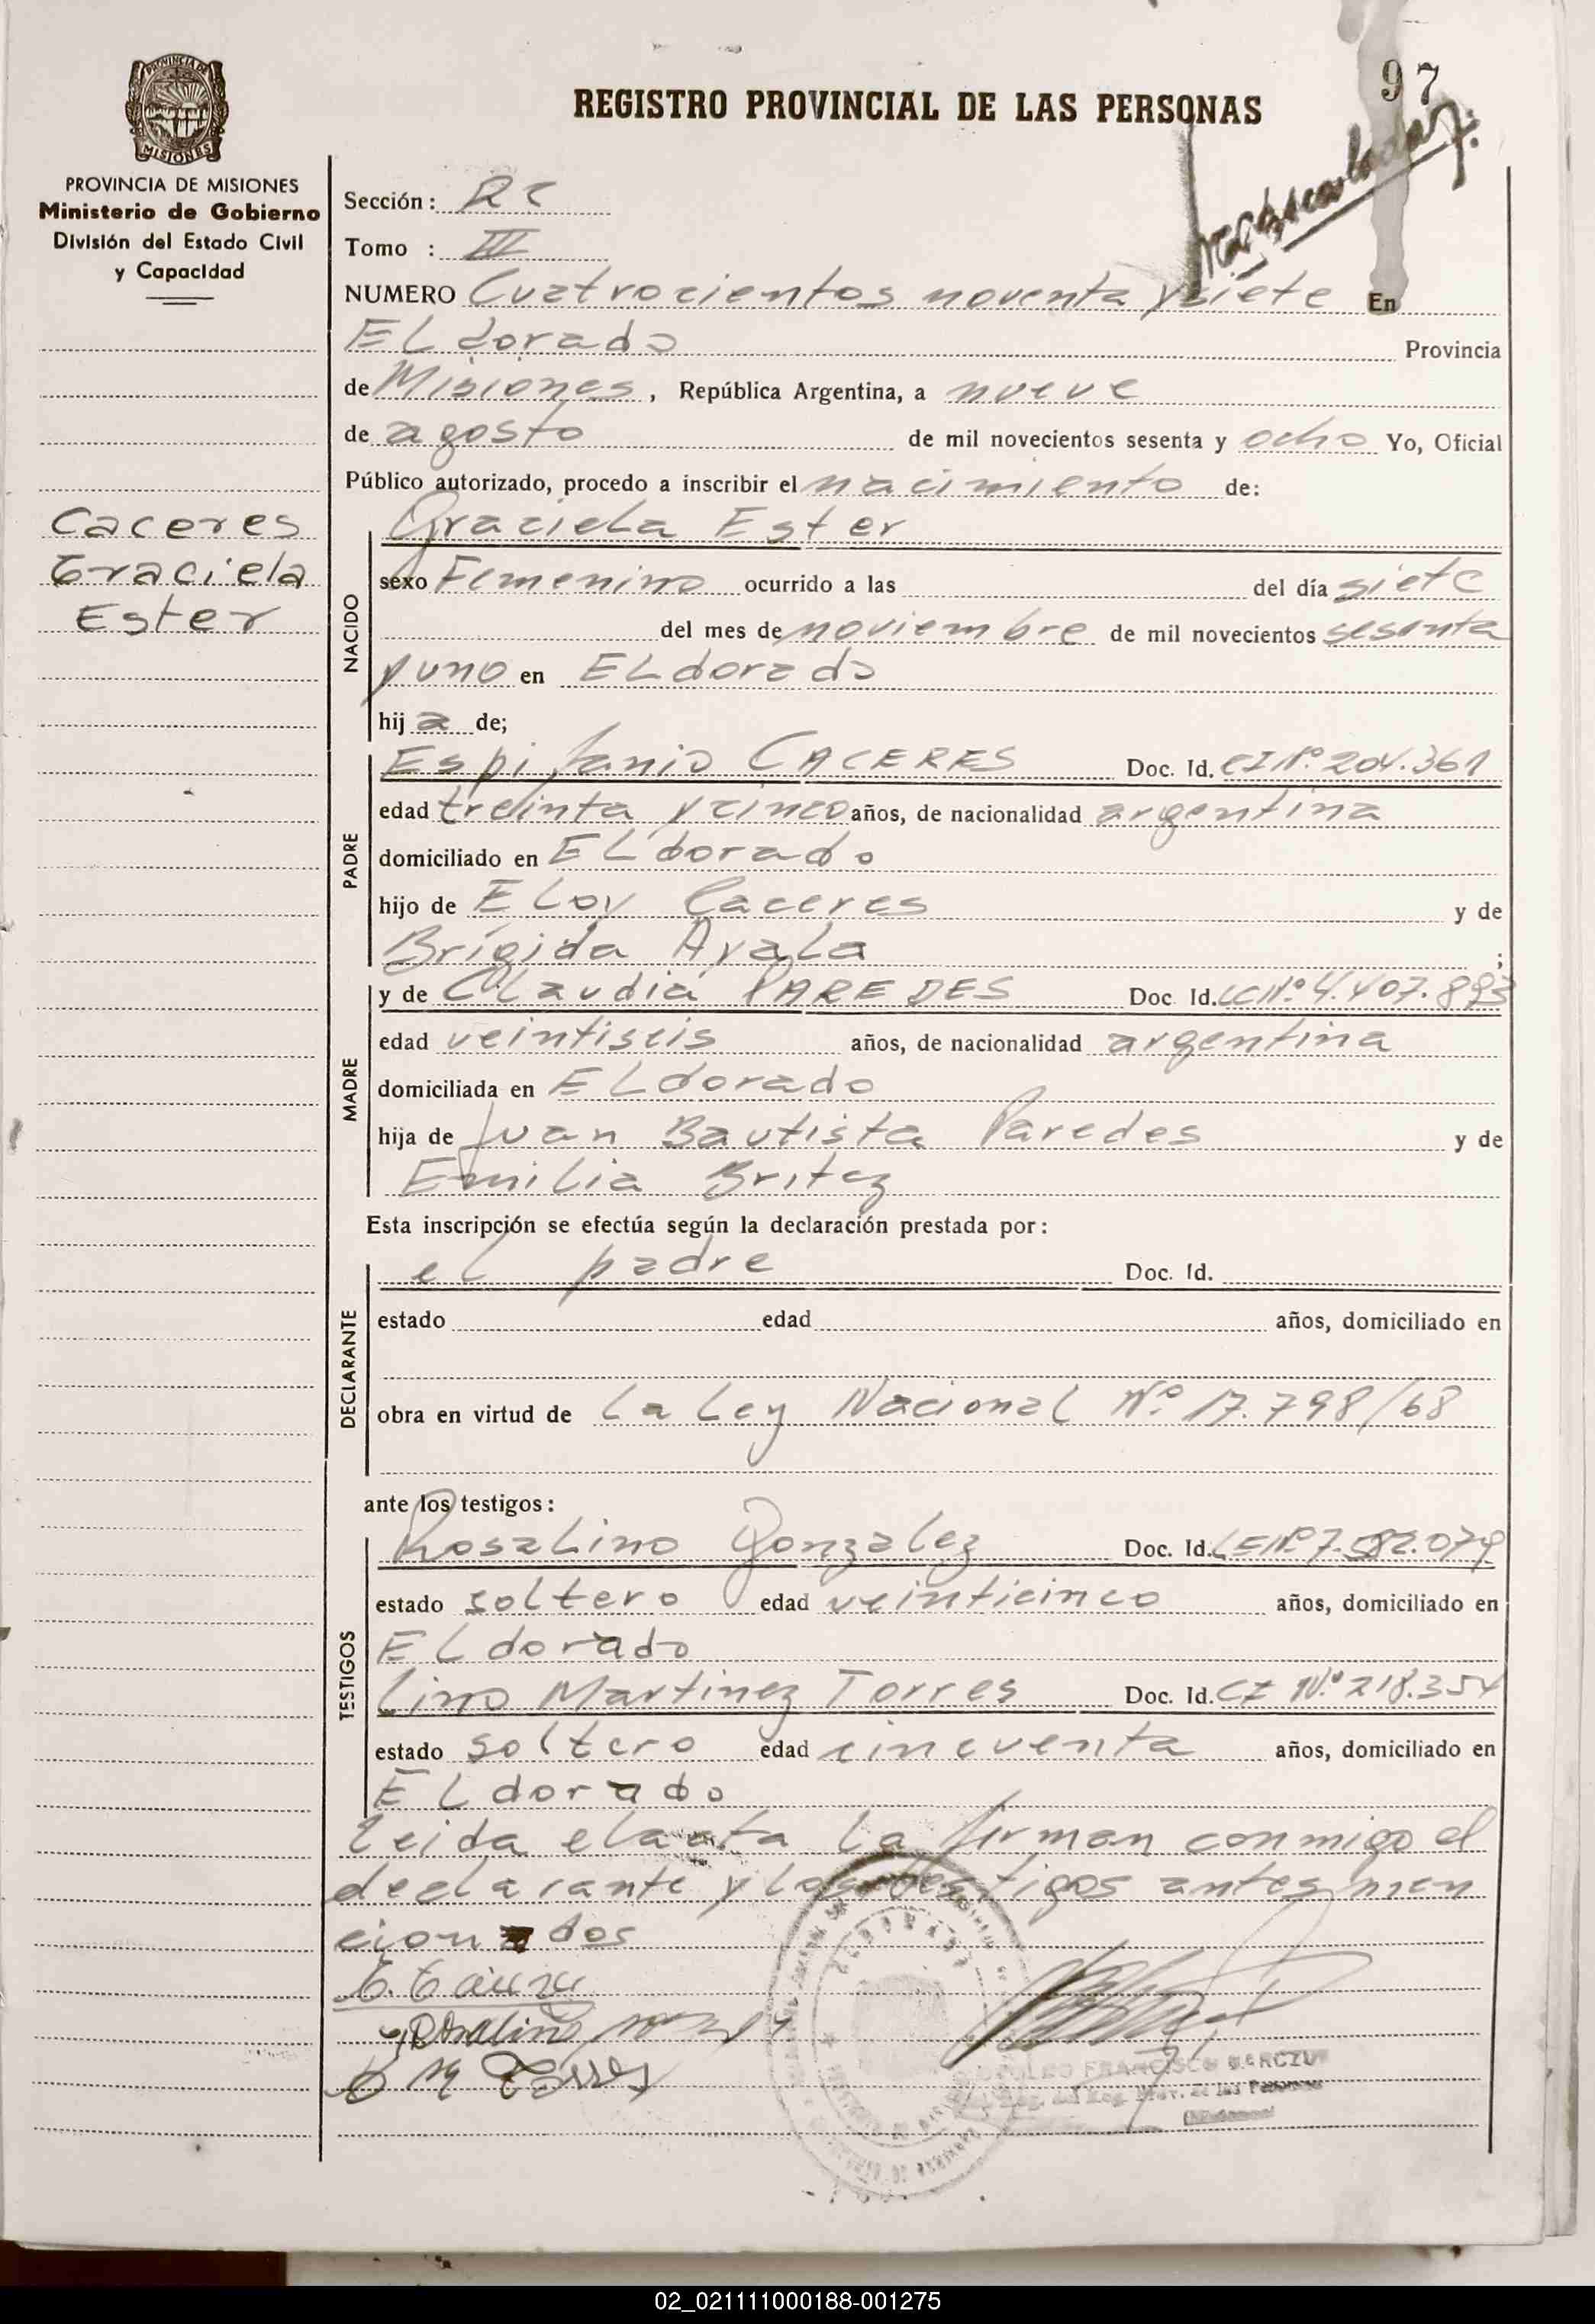 97
REGISTRO PROVINCIAL DE LAS PERSONAS
PROVINCIA DE
MISIONES
PROVINCIA DE MISIONES
Ministerio de Gobierno
División del Estado Civil
y Capacidad
Caceres
Graciela
Ester
Sección: RC
Tomo : III
NUMERO Cuatrocientos noventa y siete En
ELdorado Provincia
de Misiones, República Argentina, a nueve
de agosto de mil novecientos sesenta y ocho Yo, Oficial
Público autorizado, procedo a inscribir el nacimiento de:
Graciela Ester
NACIDO
sexo Femenino ocurrido a las del día siete
del mes de noviembre de mil novecientos sesenta
y uno en ELdorado
hija de;
PADRE
Espifanio CACERES Doc. Id. CI Nº 204.361
edad treinta y cinco años, de nacionalidad argentina
domiciliado en ELdorado
hijo de ELoy Caceres y de
Brígida AyaLa ;
MADRE
y de CLaudia PAREDES Doc Id. LC Nº 4.407.893
edad veintiseis años, de nacionalidad argentina
domiciliada en ELdorado
hija de Juan Bautista Paredes y de
EmiLia Britez
Esta inscripción se efectúa según la declaración prestada por:
DECLARANTE
el padre Doc. Id.
estado edad años, domiciliado en
obra en virtud de La Ley Nacional Nº 17.798/68
ante los testigos:
TESTIGOS
RosaLino Gonzalez Doc. Id. LE Nº 7.582.079
estado soltero edad veinticinco años, domiciliado en
ELdorado
Lino Martinez Torres Doc. Id. CI Nº 218.354
estado soltero edad cincuenta años, domiciliado en
ELdorado
Leida el acta la firman conmigo el
declarante y los testigos antes men
cionados
FRANCISCO
02_021111000188-001275